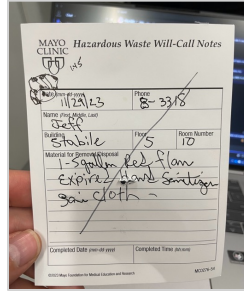 MAYO CLINIC
Hazardous Waste Will-Call Notes
Date (mm-dd-yyyy)
11/29/23
Phone
8-3318
Name (First, Middle, Last)
Jeff
Building
Stabile
Floor
5
Room Number
10
Material for Removal/Disposal
1-5gallon Red flam
Expired Hand Sanitizer
Completed Date (mm-dd-yyyy)
Completed Time (hh:mm)
©2023 Mayo Foundation for Medical Education and Research